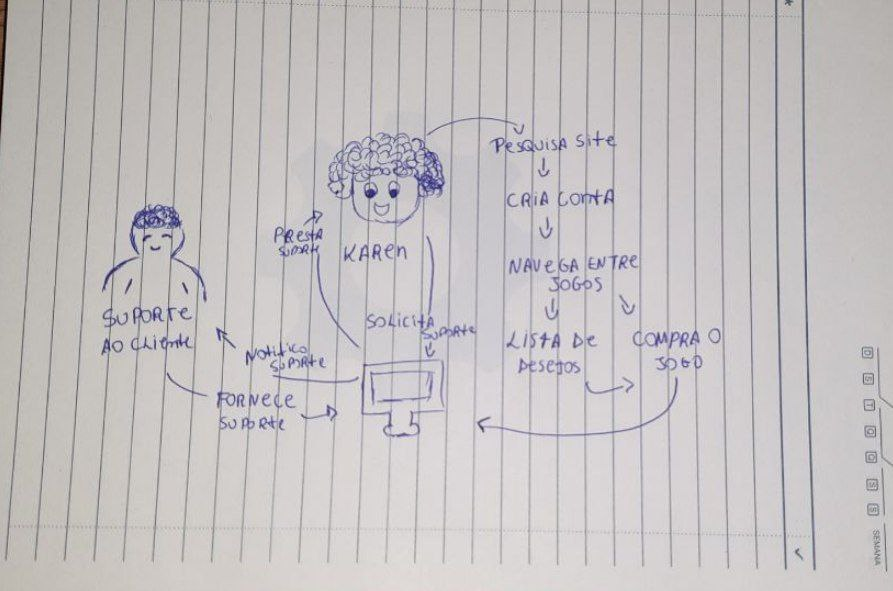 PesQUISA Site
CRIA CONTA
NAVEGA ENTRE
JOGOS
LISTA De
Desejos
COMPRA O
JOGO
KAREN
PRestA
SUPORTE
SOLICITA
SUPORTE
SUPORTE
AO Cliente
NOTIFICO
SUPORTE
FORNECE
SUPORTE
D S T Q Q S S
SEMANA